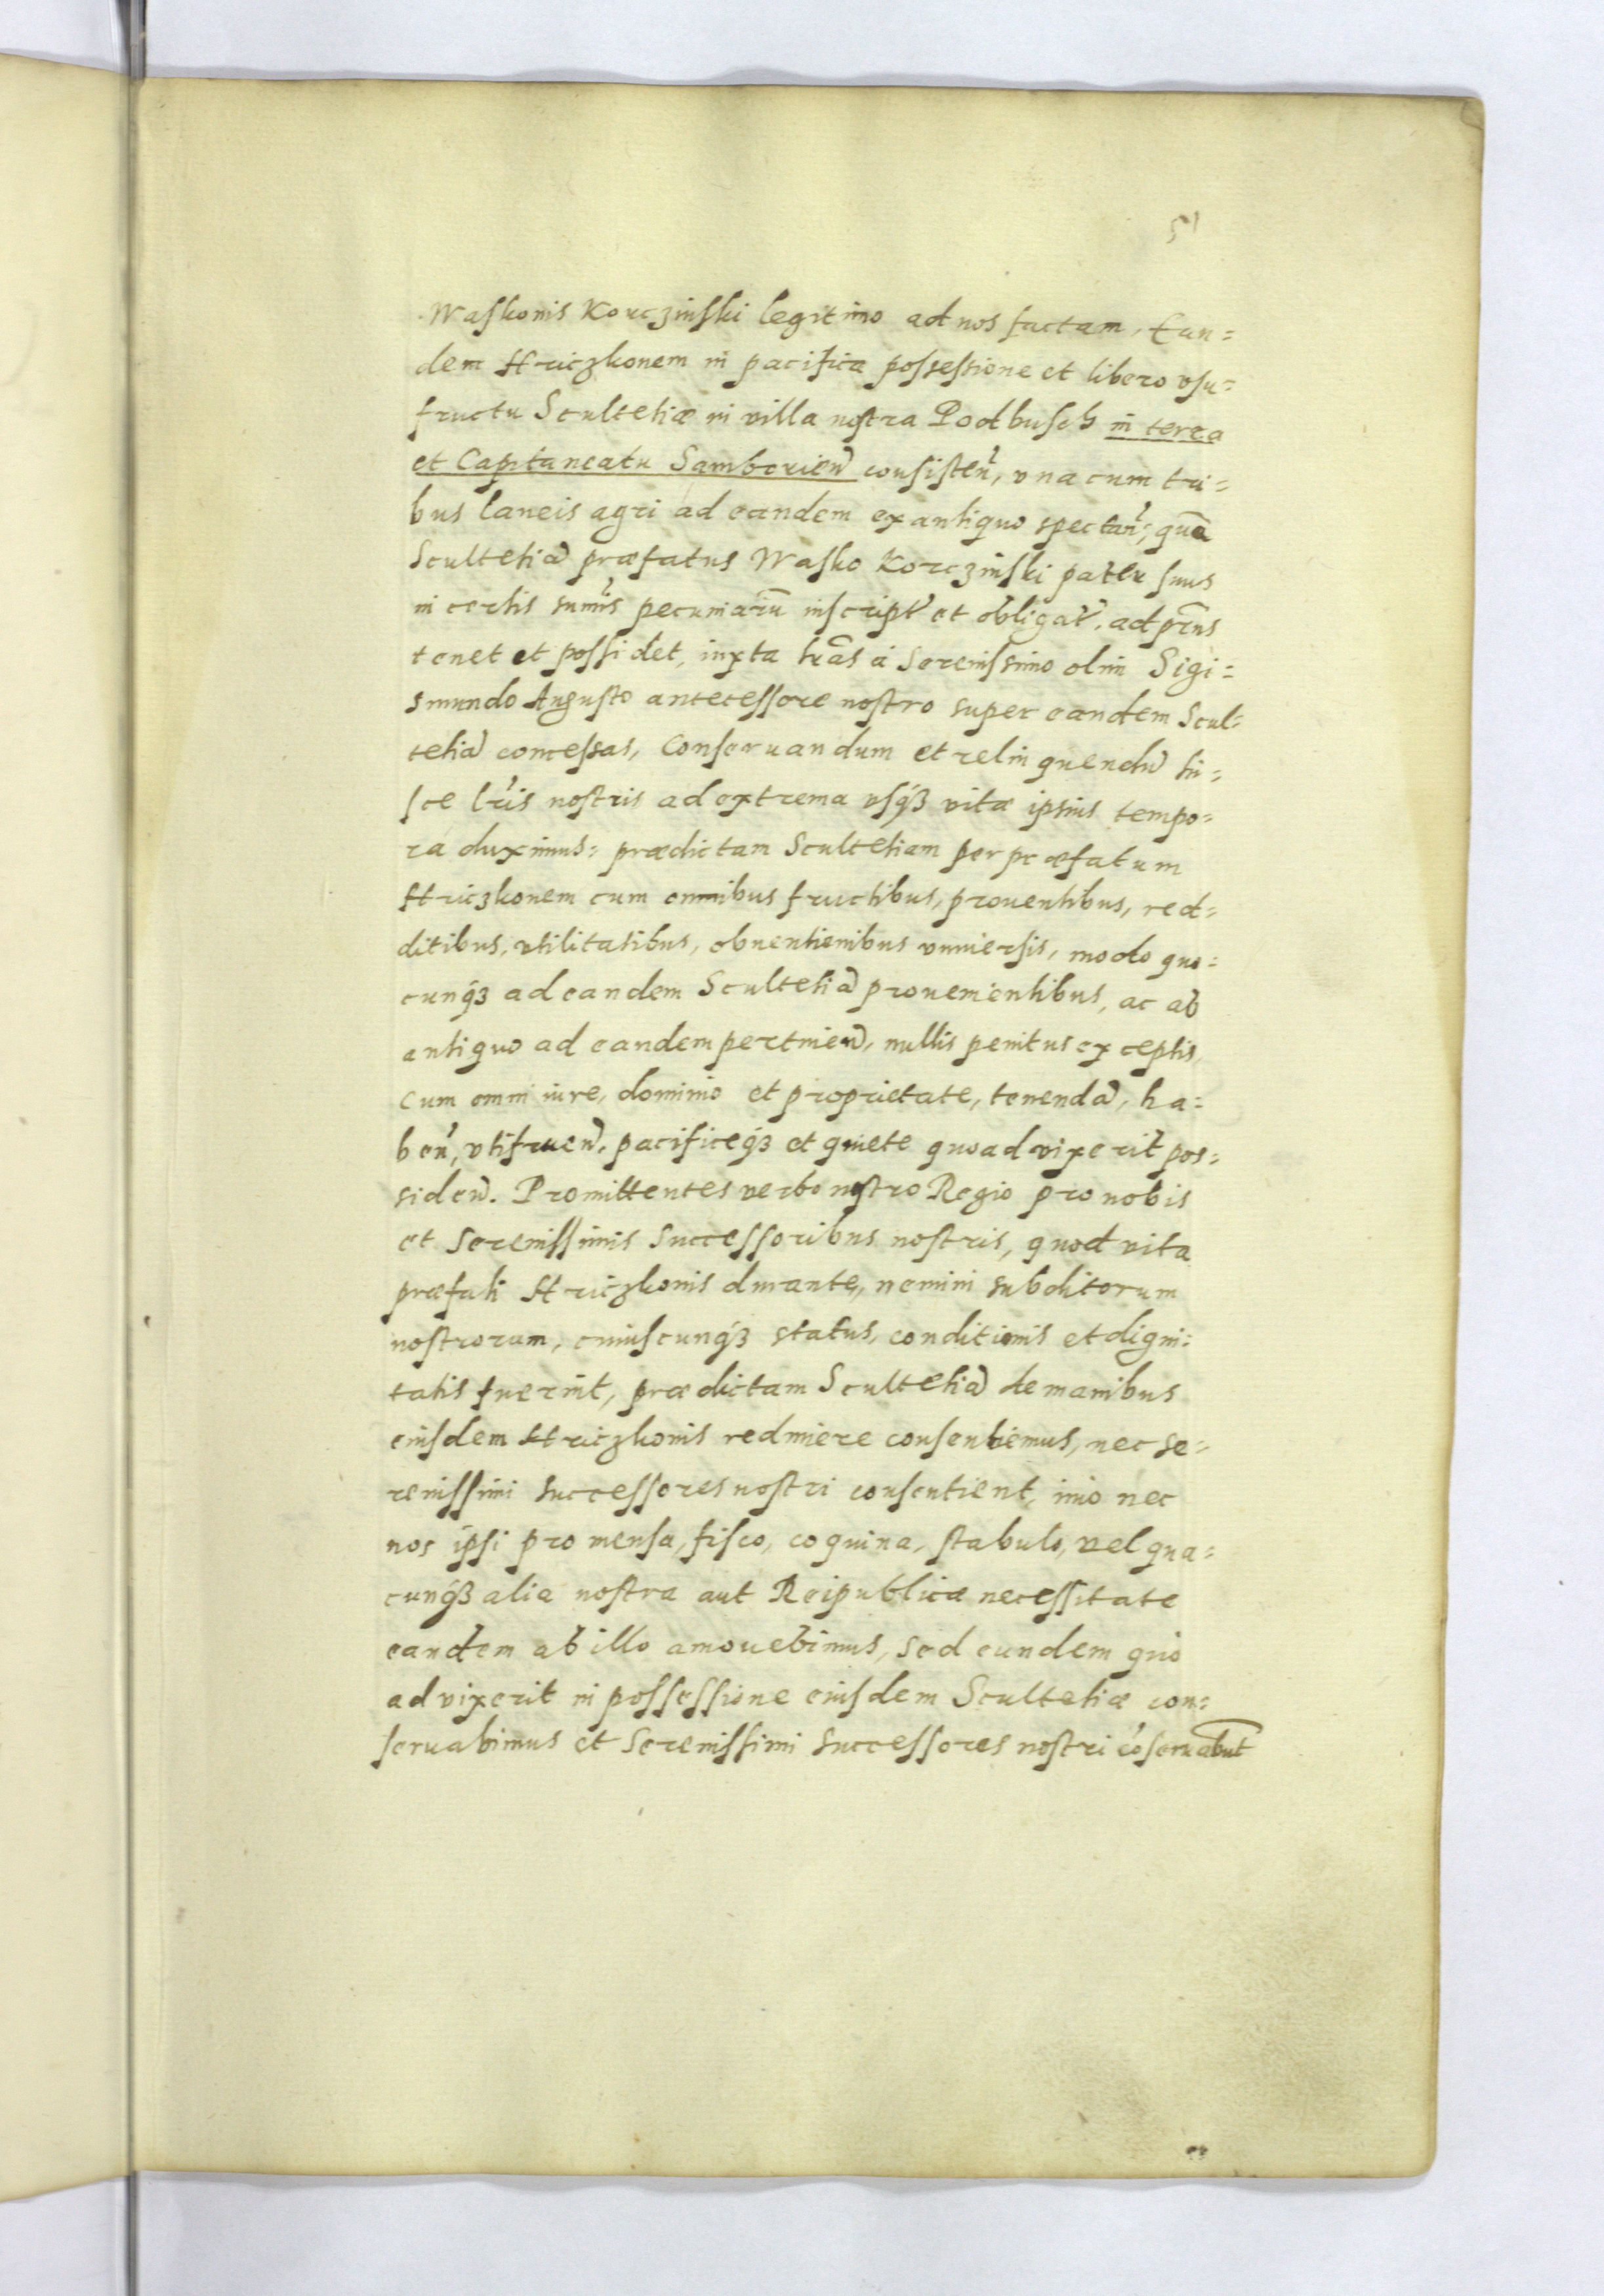 51
Waskonis Korczinski legitimo ad nos factam, Eun=
dem Hriczkonem in pacifica possessione et libero vsu=
fructu Scultetiæ in villa nostra Podbusch in terra
et Capitaneatu Samborien̄ consisten̄, vna cum tri=
bus laneis agri ad eandem ex antiquo spectan̄; quā
Scultetiā præfatus Wasko Korczinski pater suus
in certis sum̄is pecuniarū inscript̄ et obligat̄. ad p̄ns
tenet et possidet, iuxta lr̄as á Serenissimo olim Sigi=
smundo Augusto antecessore nostro super eandem Scul=
tetiā concessas, Conseruandum et relinquendū hi=
sce lr̄is nostris ad extrema vsqꝫ vitæ ipsius tempo=
ra duximus: prædictam Scultetiam per præfatum
Hriczkonem cum omnibus fructibus, prouentibus, red=
ditibus, vtilitatibus, obuentionibus vniuersis, modo quo=
cunqꝫ ad eandem Scultetiā prouenientibus, ac ab
antiquo ad eandem pertinen̄, nullis penitus exceptis,
Cum omni iure, dominio et proprietate, tenendā, ha=
ben̄, vtifruen̄. pacificeqꝫ et quiete quoad vixerit pos=
siden̄. Promittentes verbo nostro Regio pro nobis
et Serenissimis Successoribus nostris, quod vita
præfati Hriczkonis durante, nemini subditorum
nostrorum, cuiuscunqꝫ status, conditionis et digni=
tatis fuerint, prædictam Scultetiā de manibus
eiusdem Hriczkonis redimere consentiemus, nec Se=
renissimi Successores nostri consentient, imo nec
nos ipsi pro mensa, fisco, coquina, stabulo, vel qua=
cunqꝫ alia nostra aut Reipublicæ necessitate
eandem ab illo amouebimus, sed eundem quo
ad vixerit in possessione eiusdem Scultetiæ con=
seruabimus et Serenissimi Successores nostri cōseruabūt